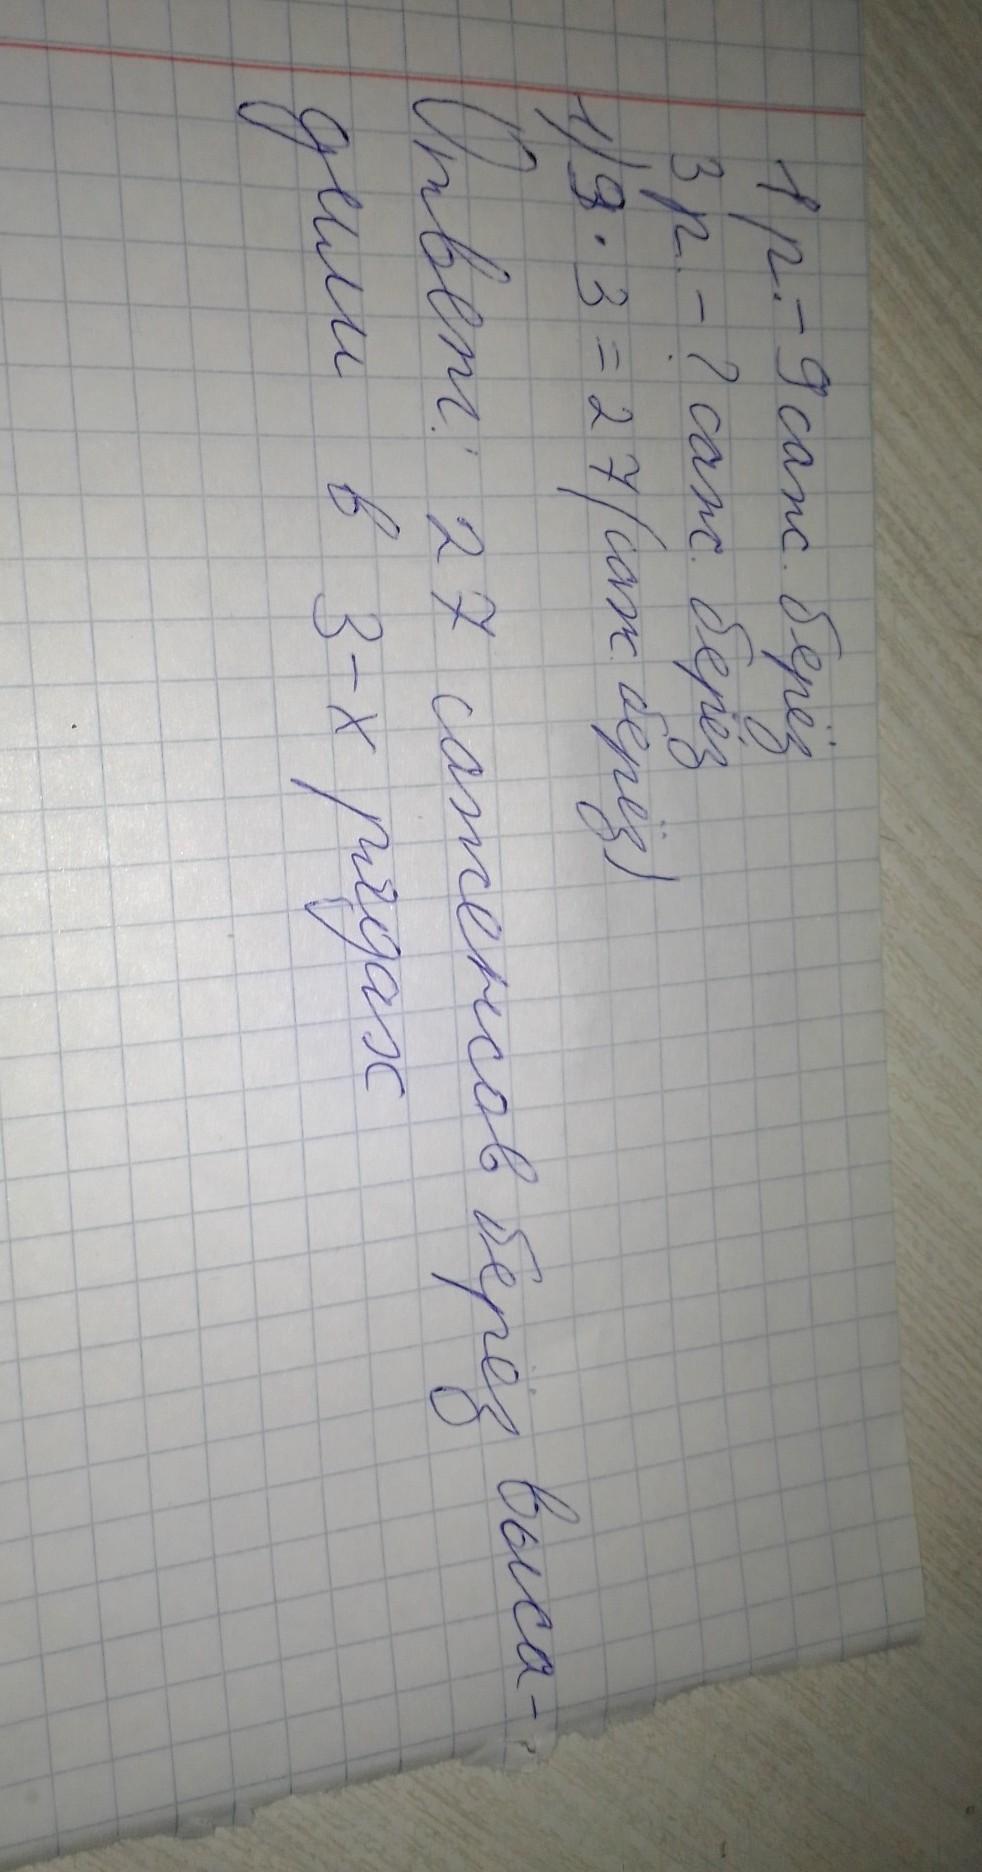 1 р. - 9 саж. берёз
3 р. - ? саж. берёз
1) 9 · 3 = 27 (саж. берёз)
Ответ: 27 саженсов берёз выса-
дили в 3-х рядах